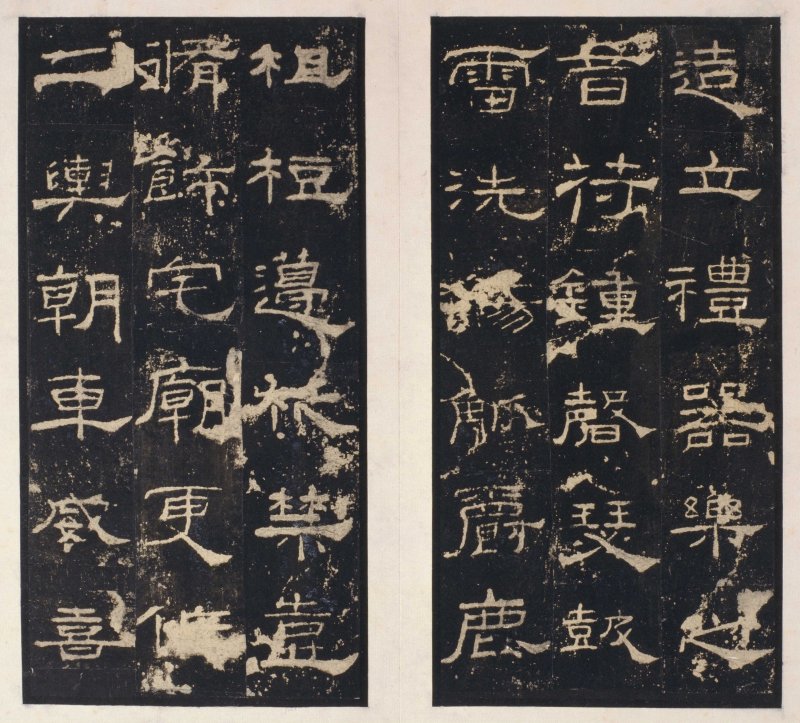 造立禮器樂之
音苻鍾磬瑟皷
雷洗觴觚爵鹿
柤梪籩柉禁壺
脩飾宅廟更作
二輿朝車威熹